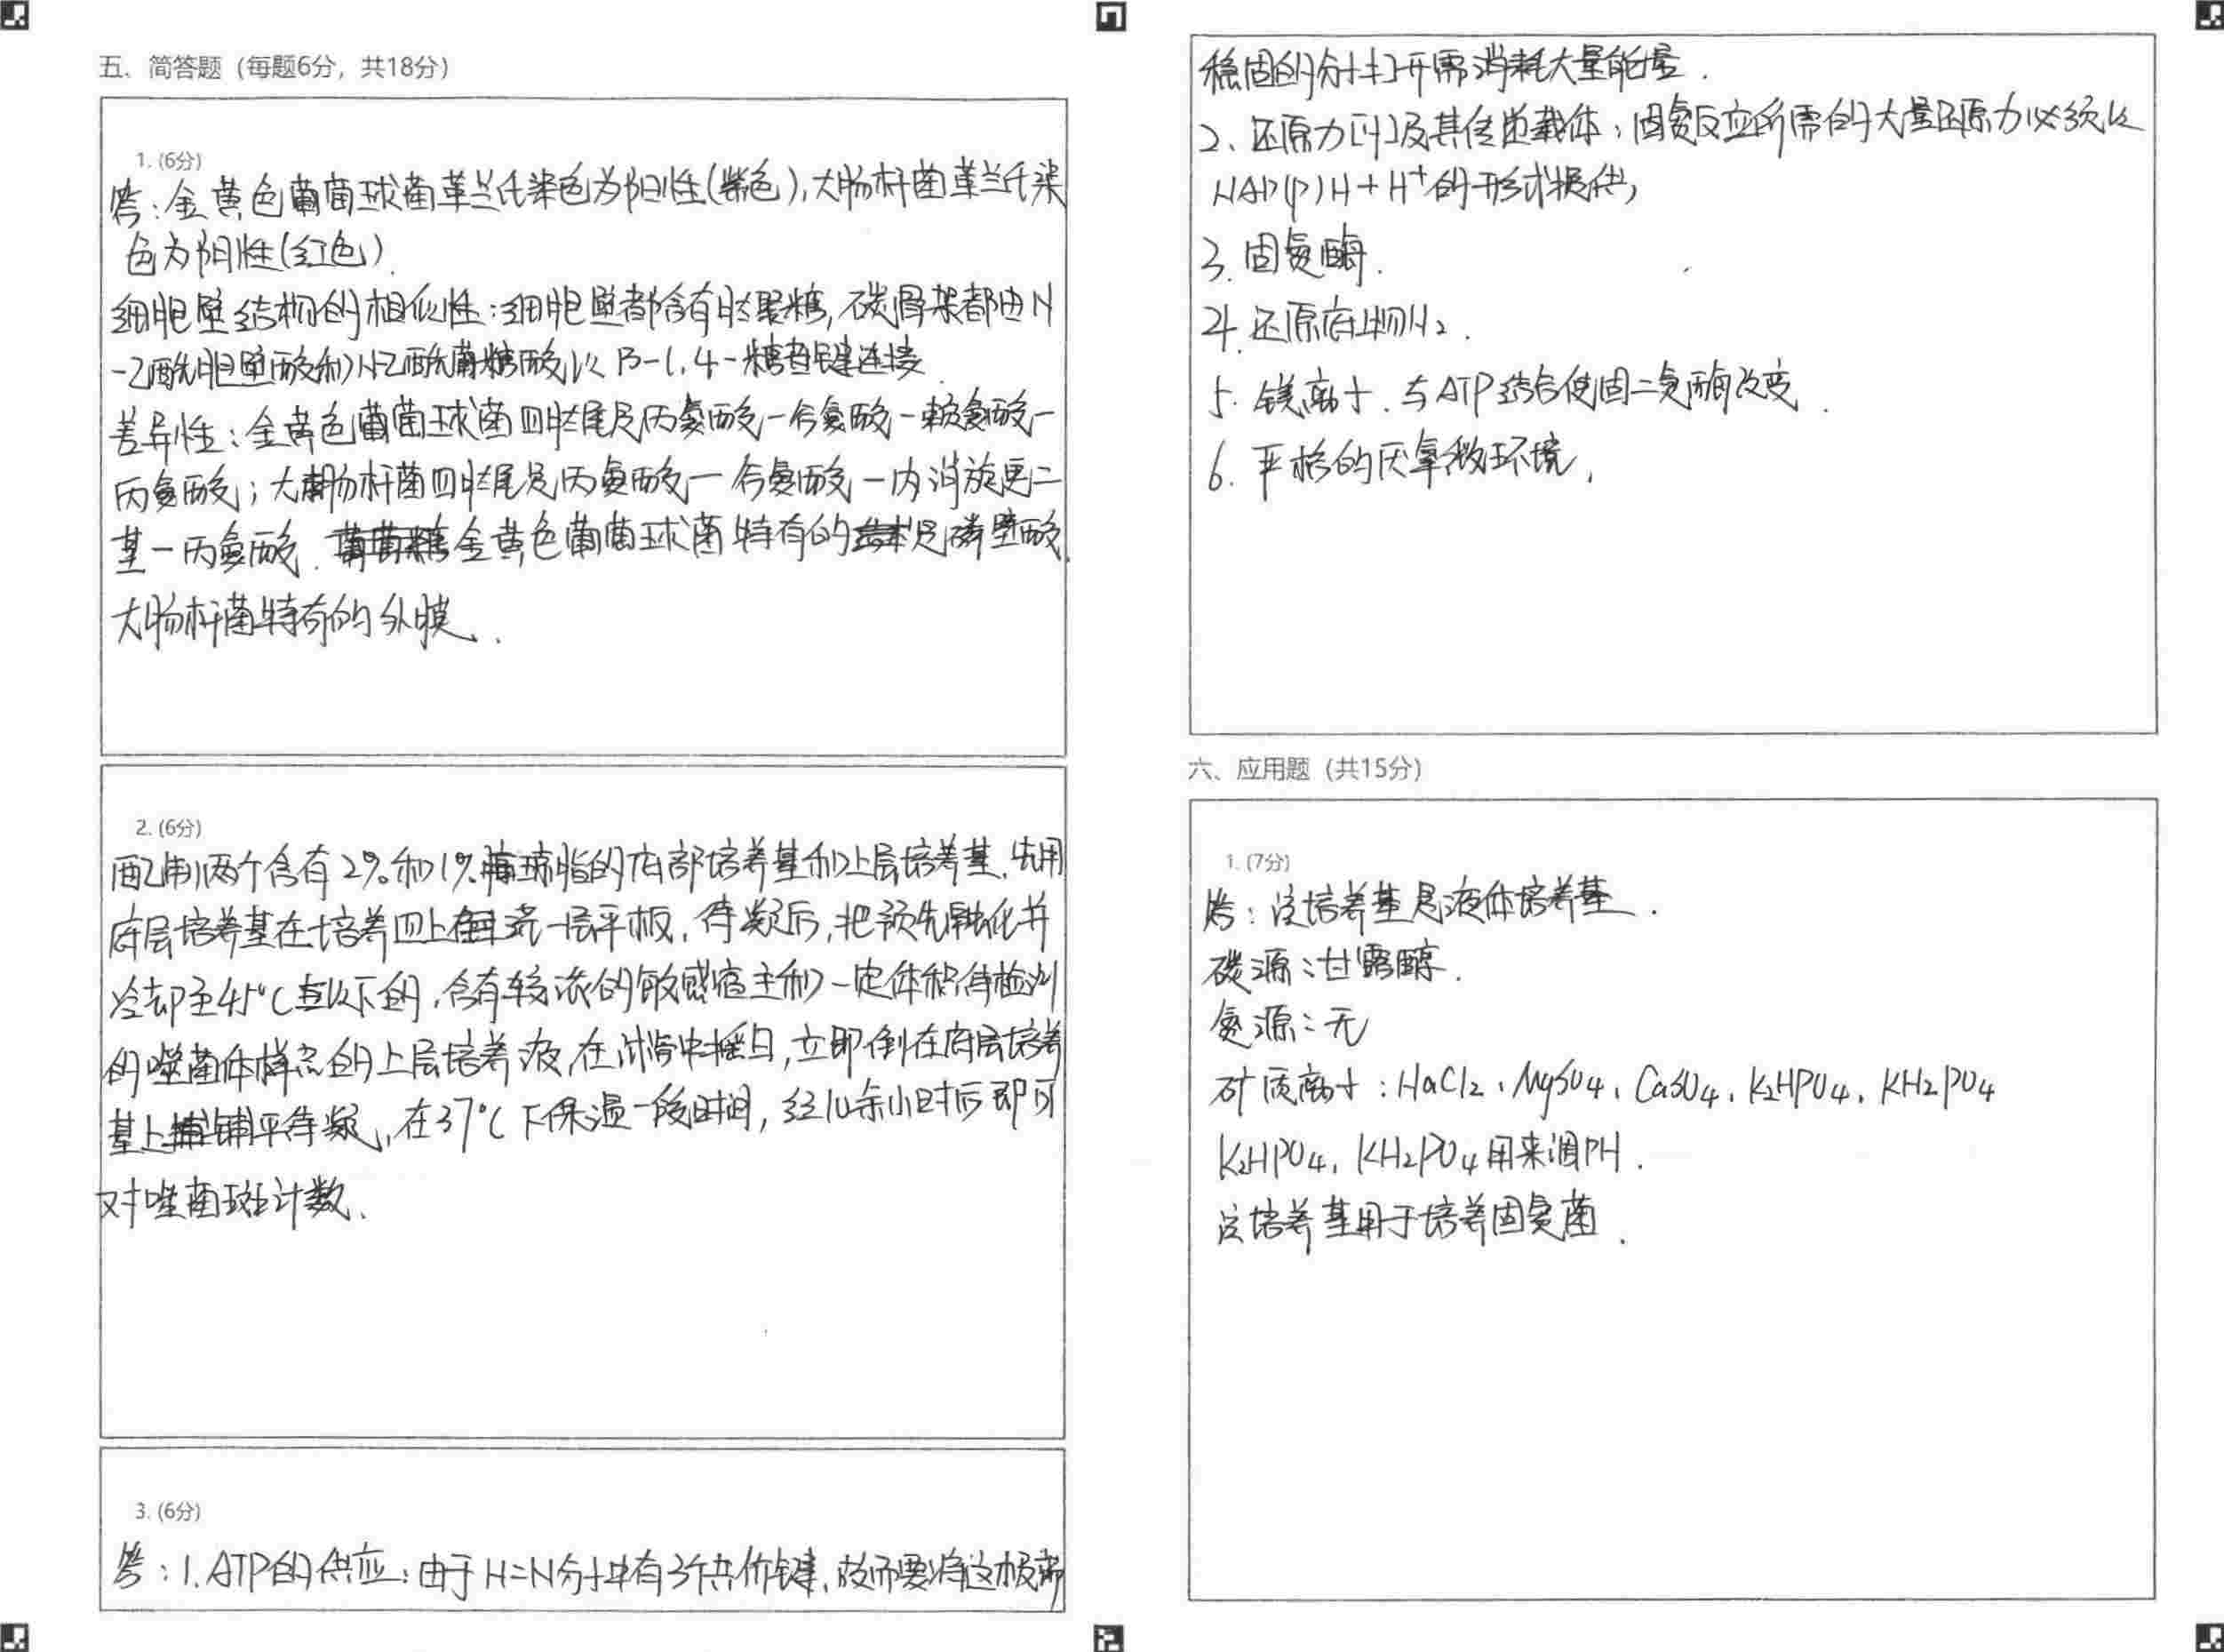 五、简答题（每题6分，共18分）
1. (6分)
答：金黄色葡萄球菌革兰氏染色为阳性(紫色),大肠杆菌革兰氏染
色为阴性(红色).
细胞壁结构的相似性：细胞壁都含有肽聚糖, 碳骨架都由N
-乙酰胞壁酸和N-乙酰葡糖酸以β-1,4-糖苷键连接.
差异性：金黄色葡萄球菌四肽尾是丙氨酸-谷氨酸-赖氨酸-
丙氨酸；大肠杆菌四肽尾是丙氨酸-谷氨酸-内消旋更二
基-丙氨酸. 金黄色葡萄球菌特有的是磷壁酸.
大肠杆菌特有的外膜.
2. (6分)
配制两个含有2%和1%琼脂的底部培养基和上层培养基. 先用
底层培养基在培养皿上浇一层平板, 待凝后, 把预先融化并
冷却至45℃以下的, 含有较浓的敏感宿主和一定体积待检测
的噬菌体样品的上层培养液, 在试管中摇匀, 立即倒在底层培养
基上铺平待凝, 在37℃下保温一段时间, 经10余小时后即可
对噬菌斑计数.
3. (6分)
答：1. ATP的供应：由于N≡N分子中有3个共价键, 故而要将这极端
稳固的分子打开需消耗大量能量.
2、还原力[H]及其传递载体：固氮反应所需的大量还原力必须以
NAD(P)H+H⁺的形式提供,
3. 固氮酶.
4. 还原底物N₂.
5. 镁离子. 与ATP结合使固二氮酶改变.
6. 严格的厌氧微环境.
六、应用题（共15分）
1. (7分)
答：该培养基是液体培养基.
碳源：甘露醇.
氮源：无
矿质离子：NaCl₂、MgSO₄、CaSO₄、K₂HPO₄、KH₂PO₄
K₂HPO₄, KH₂PO₄用来调PH.
该培养基用于培养固氮菌.